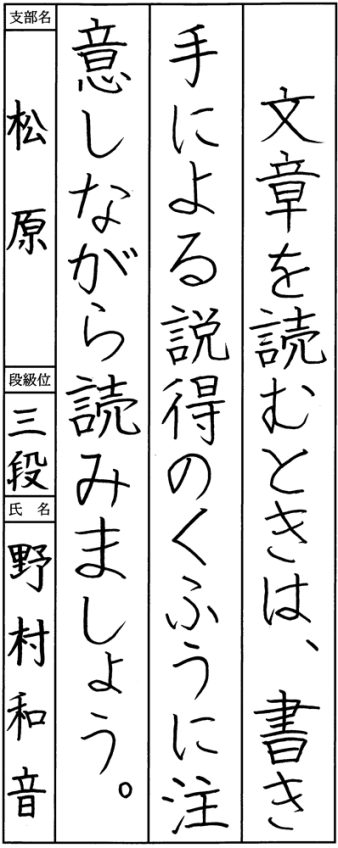 文章を読むときは、書き
手による説得のくふうに注
意しながら読みましょう。
支部名
松原
段級位
三段
氏名
野村和音